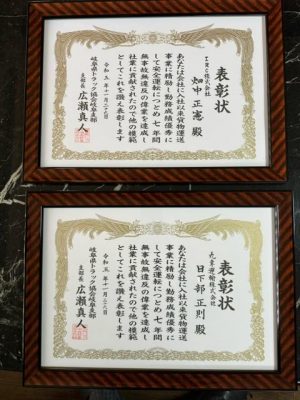 表彰状
TRC株式会社
畑中正憲 殿
あなたは会社に入社以来貨物運送
事業に精励し勤務成績優秀に
して安全運転につとめ七年間
無事故無違反の偉業を達成し
社業に貢献されたので他の模範
としてこれを讃え表彰します
令和五年十一月二十八日
岐阜県トラック協会岐阜支部
支部長 広瀬真人
表彰状
丸幸運輸株式会社
日下部正則 殿
あなたは会社に入社以来貨物運送
事業に精励し勤務成績優秀に
して安全運転につとめ七年間
無事故無違反の偉業を達成し
社業に貢献されたので他の模範
としてこれを讃え表彰します
令和五年十一月二十八日
岐阜県トラック協会岐阜支部
支部長 広瀬真人